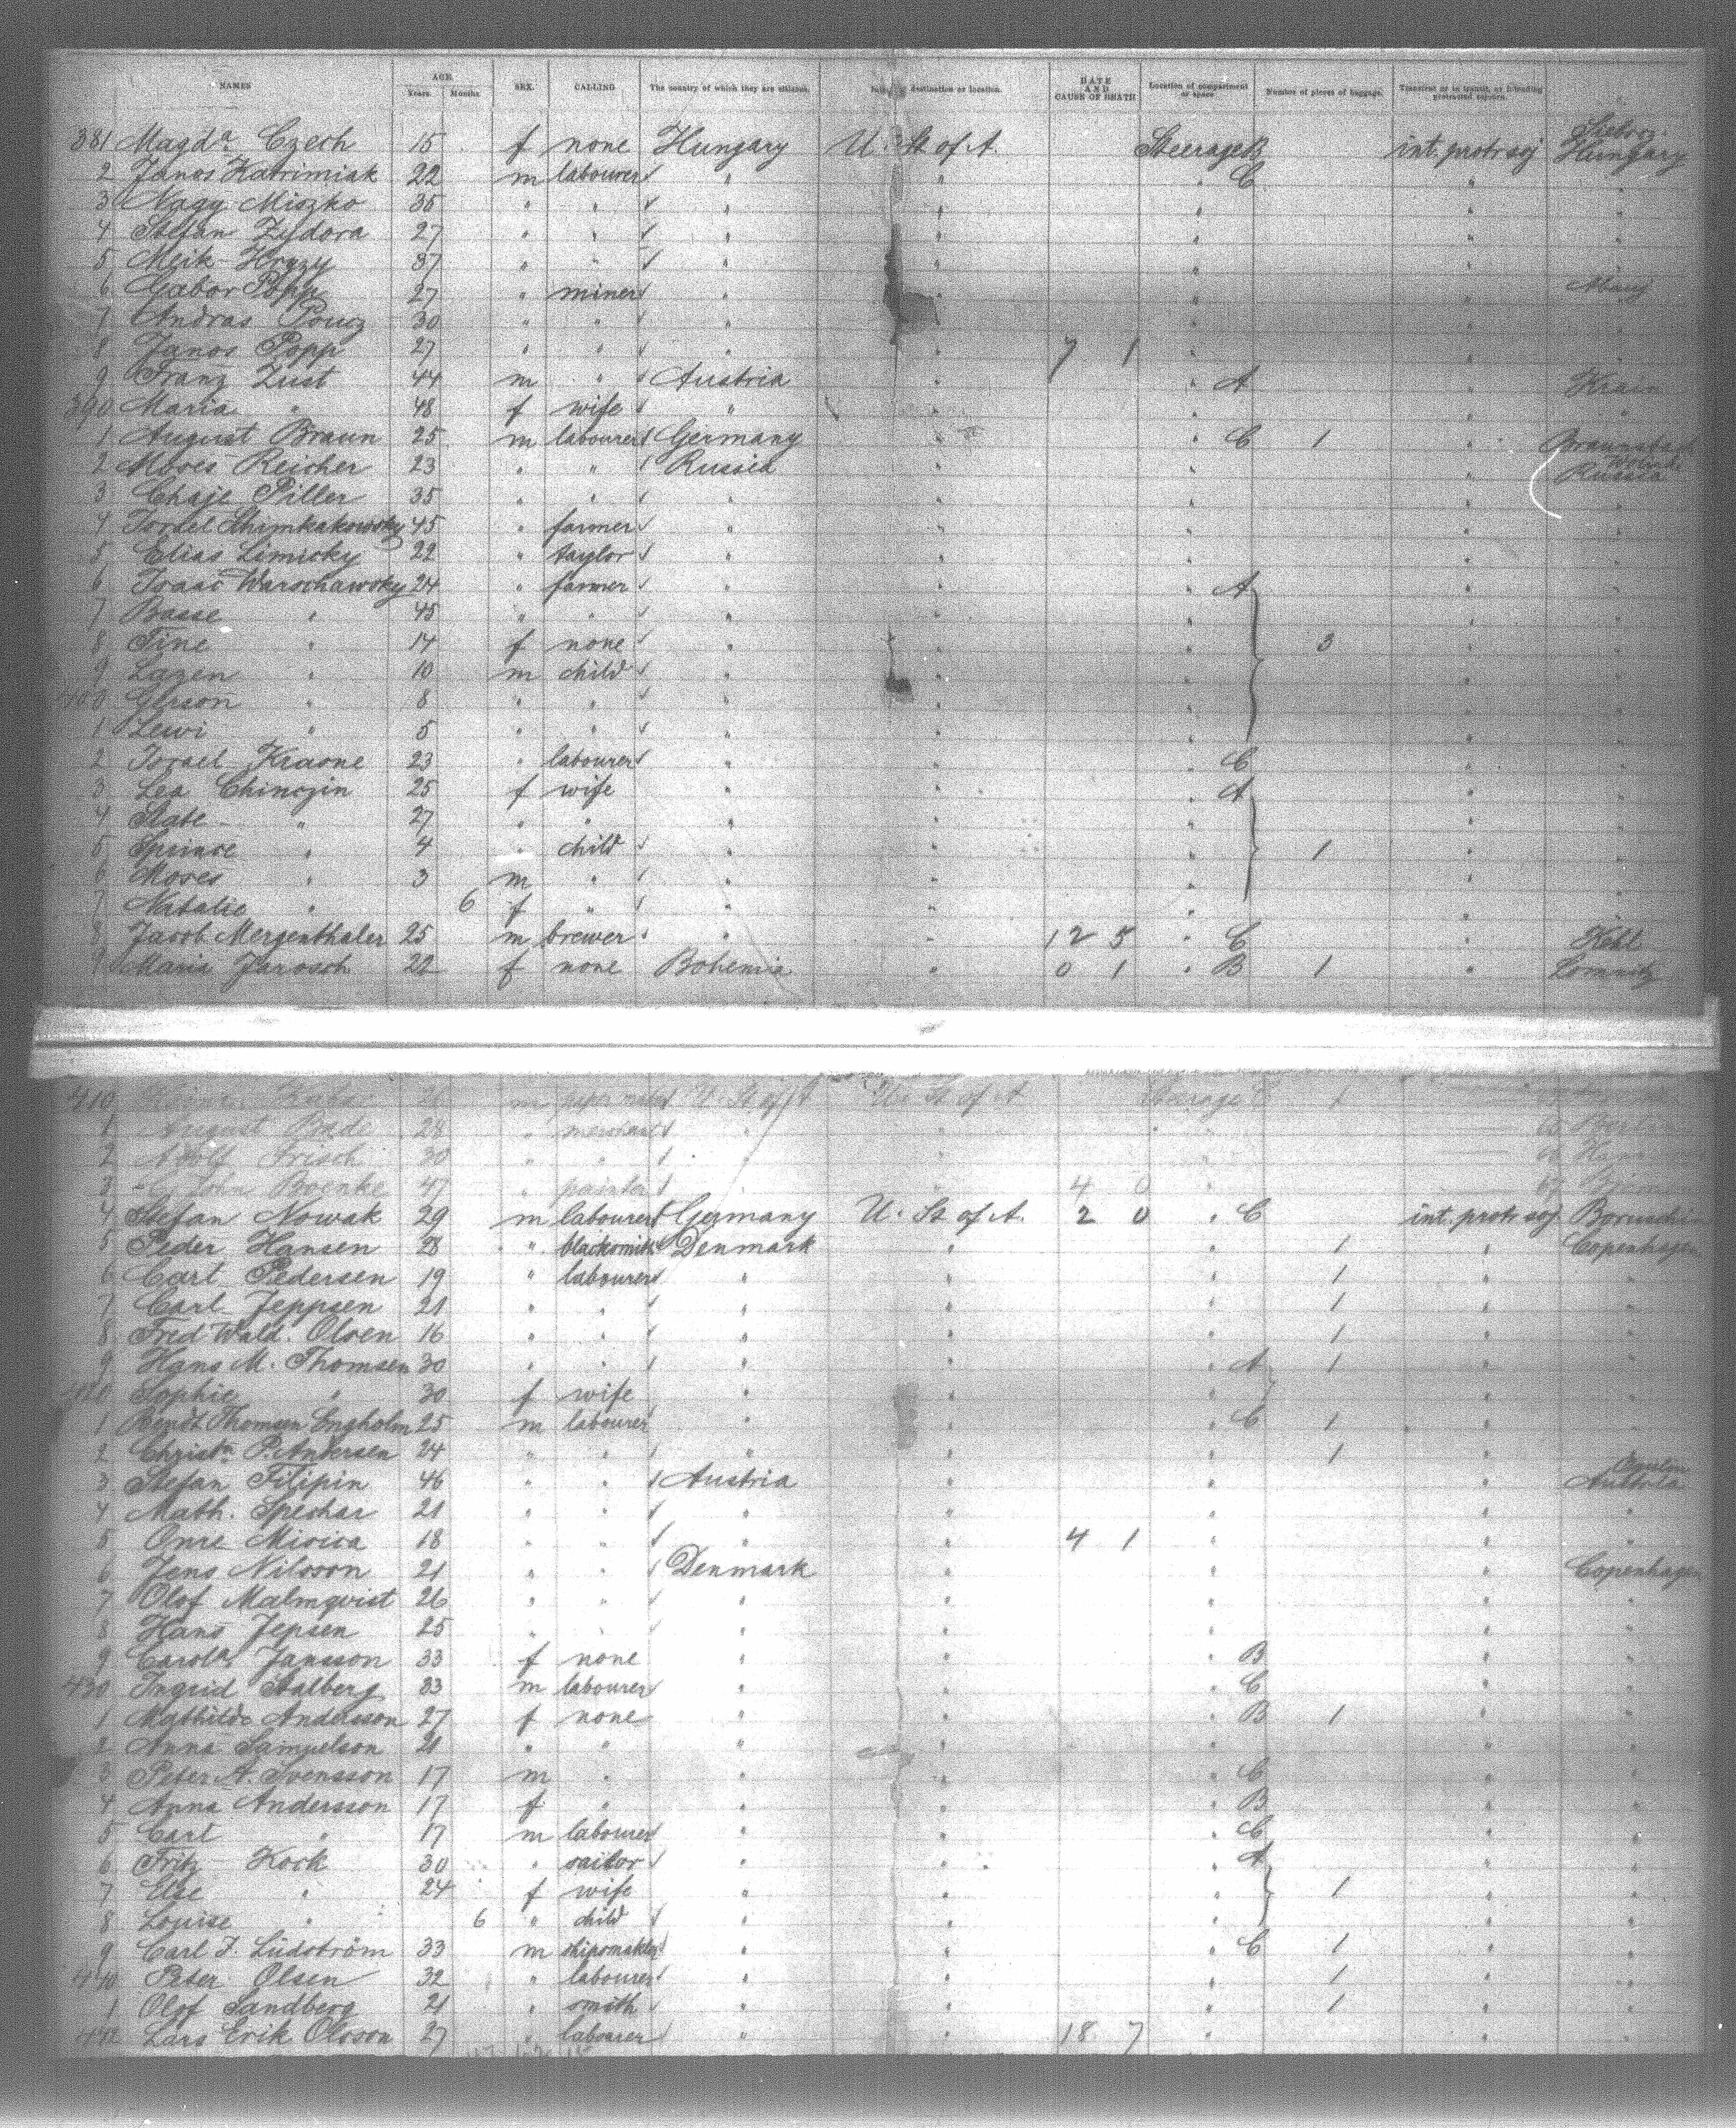 NAMES AGE. Years. Months. SEX. CALLING The country of which they are citizens. destination or location. DATE AND CAUSE OF DEATH Location of compartment or space Number of pieces of baggage. Transient or in transit, or intending protracted sojourn.
381 Magda Czech 15 f none Hungary U. St of A. Steerage B int. protr soj Hungary
2 Janos Katrimiak 22 m labourer " " " C " "
3 Nagy Miszko 35 " " " " " " "
4 Stefan Zydora 27 " " " " " " "
5 Meik Hryzy 37 " " " " " " "
6 Gabor Popp 27 " miner " " " "
7 Andras Poucz 30 " " " " " " "
8 Janos Popp 27 " " " " 7 1 " " "
9 Franz Zust 44 m " Austria " " A " Krain
390 Maria " 48 f wife " " " " "
1 August Braun 25 m labourer Germany " " C 1 "
2 Moses Reicher 23 " " Russia " " " Russia
3 Chaje Piller 35 " " " " " " "
4 Israel Shimkakowsky 45 " farmer " " " " "
5 Elias Limicky 22 " taylor " " " " "
6 Isaac Warschawsky 24 " farmer " " " A " "
7 Basse " 45 " " " " " " "
8 Tine " 14 f none " " " 3 " "
9 Lazen " 10 m child " " " " "
400 Gerson " 8 " " " " " " "
1 Lewi " 5 " " " " " " "
2 Israel Krasne 23 " labourer " " " C " "
3 Lea Chinczin 25 f wife " " " A " "
4 State " 27 " " " " " " "
5 Sprinse " 4 " child " " " 1 " "
6 Moses " 3 m " " " " " "
7 Natalie " 6 f " " " " " "
8 Jacob Mergenthaler 25 m brewer " " 12 5 " C " Kehl
9 Maria Jarosch 22 f none Bohemia " 0 1 " B 1 " Lomnitz
410 26 m U. St of A U. St of A Steerage C 1
1 August Bade 28 " merchant " " " Berlin
2 Adolf Frisch 30 " " " " "
3 John Boenke 47 " painter " " 4 0 "
4 Stefan Nowak 29 m labourer Germany U. St of A. 2 0 " C int. protr soj
5 Peder Hansen 28 " blacksmith Denmark " " 1 " Copenhagen
6 Carl Pedersen 19 " labourer " " " 1 " "
7 Carl Jeppsen 21 " " " " " 1 " "
8 Fred Wald. Olsen 16 " " " " " 1 " "
9 Hans M. Thomsen 30 " " " " " A 1 " "
420 Sophie " 30 f wife " " " " "
1 Bendt Thomsen Engholm 25 m labourer " " " C 1 " "
2 Christn P. Andersen 24 " " " " " 1 " "
3 Stefan Filipin 46 " " Austria " " " Austria
4 Math. Spechar 21 " " " " " " "
5 Onre Misica 18 " " " " 4 1 " " "
6 Jens Nilsson 21 " " Denmark " " " Copenhagen
7 Olof Malmqvist 26 " " " " " " "
8 Hans Jepsen 25 " " " " " " "
9 Carola Jansson 33 f none " " " B " "
430 Ingrid Stalberg 23 m labourer " " " C " "
1 Mathilda Andersson 27 f none " " " B 1 " "
2 Anna Samuelson 21 " " " " " " "
3 Peter A. Svensson 17 m " " " " C " "
4 Anna Andersson 17 f " " " " B " "
5 Carl " 17 m labourer " " " C " "
6 Fritz Kock 30 " sailor " " " A " "
7 Else " 24 f wife " " " 1 " "
8 Louise " 6 " child " " " " "
9 Carl J. Lüdström 33 m " " " C 1 " "
440 Peter Olsen 32 " labourer " " " 1 " "
1 Olof Sandberg 21 " smith " " " 1 " "
442 Lars Erik Olsson 27 " labourer " " 18 7 " " "